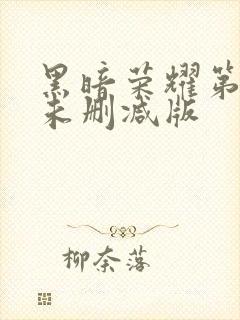 黑暗荣耀第
未删减版
柳奈落